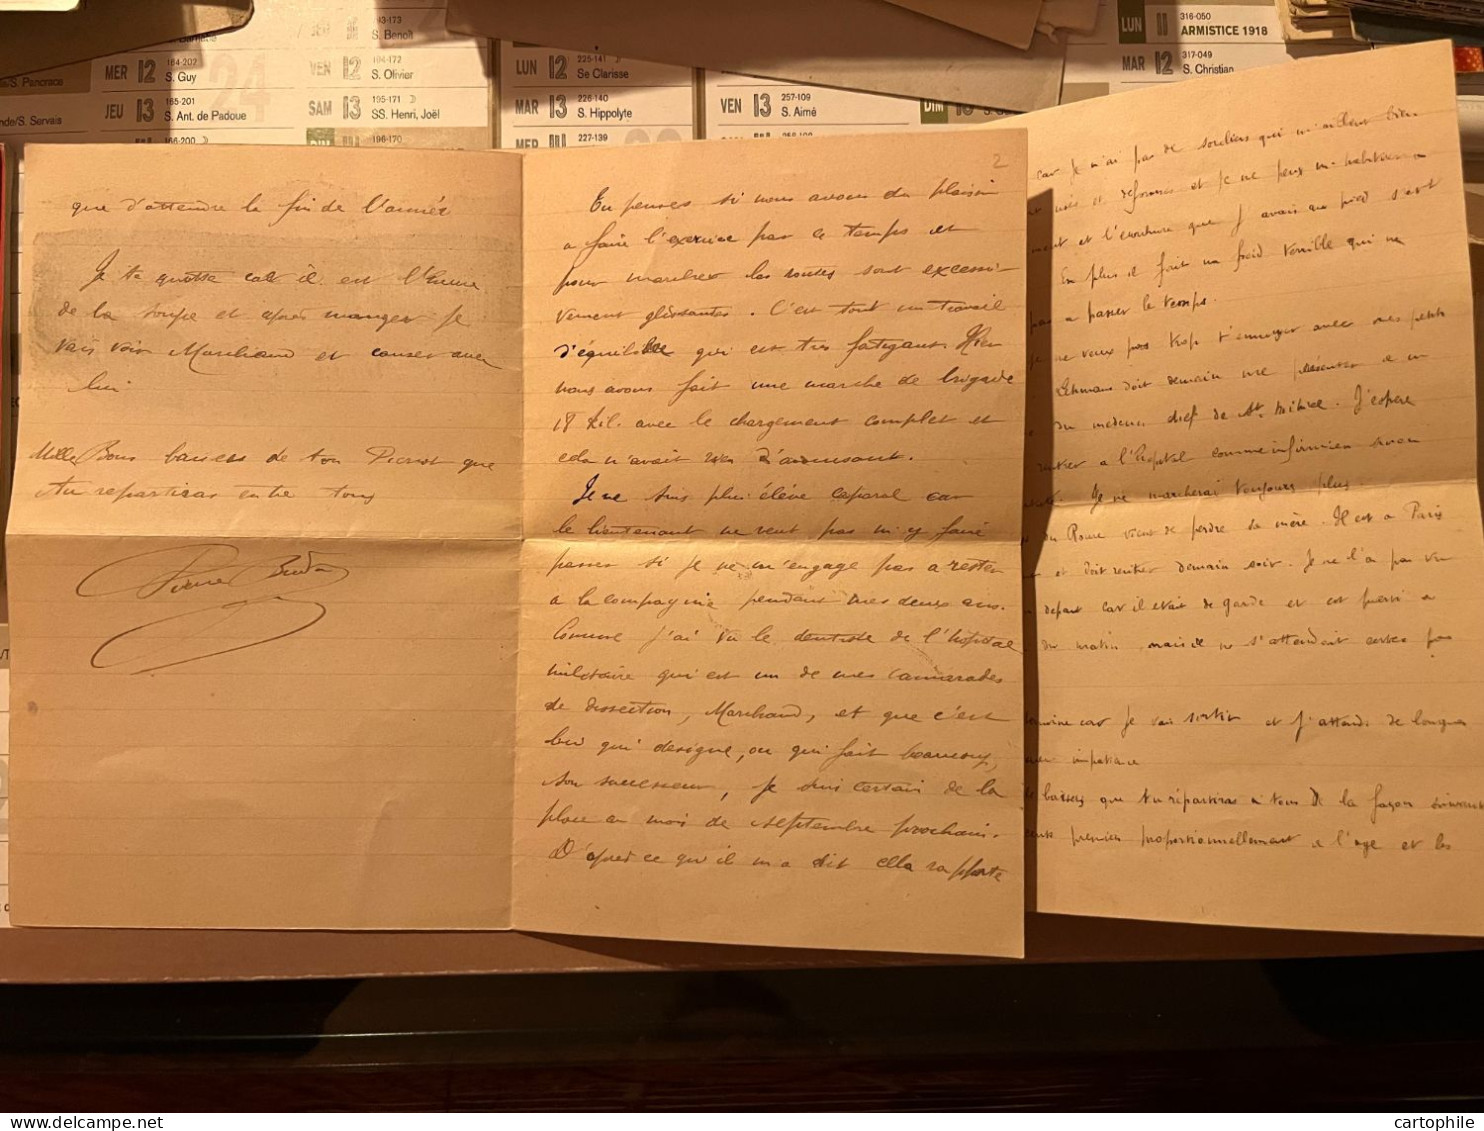 MER 12 164-202 S. Guy
JEU 13 165-201 S. Ant. de Padoue
166-200
S. Benoît
VEN 12 194-172 S. Olivier
SAM 13 195-171 SS. Henri, Joël
196-170
LUN 12 225-141 Se Clarisse
MAR 13 226-140 S. Hippolyte
MER 227-139
VEN 13 257-109 S. Aimé
LUN 11 316-050 ARMISTICE 1918
MAR 12 317-049 S. Christian
que d'attendre la fin de l'année
Je te quitte car il est l'heure
de la soupe et après manger je
vais voir Marchand et causer avec
lui
Mille Bons baisers de ton Pierrot que
tu repartiras entre tous
Pierre
2
Tu penses si nous avons du plaisir
a faire l'exercice par ce temps et
pour marcher les routes sont excessi-
vement glissantes. C'est tout un travail
d'équilibre qui est très fatigant. Hier
nous avons fait une marche de brigade
18 kil. avec le chargement complet et
cela n'avait rien d'amusant.
Je ne suis plus élève caporal car
le lieutenant ne veut pas m'y faire
passer si je ne m'engage pas a rester
a la compagnie pendant mes deux ans.
Comme j'ai vu le dentiste de l'hôpital
militaire qui est un de mes camarades
de dissection, Marchand, et que c'est
lui qui designe, ou qui fait beaucoup,
son successeur, je suis certain de la
place au mois de septembre prochain.
D'après ce qu'il m'a dit cella rapporte
car je n'ai pas de souliers qui m'aillent bien
usés et deformés et je ne peux m'habituer
ment et l'écorchure que j'avais au pied s'est
En plus il fait un froid terrible qui ne
pas a passer le temps.
je ne veux pas trop t'ennuyer avec mes petits
Lehmans doit demain me présenter a un
du medecin chef de St. Mihiel. J'espere
rentrer a l'hopital comme infirmier
Je ne marcherai toujours plus
du Roure vient de perdre sa mère. Il est a Paris
et doit rentrer demain soir. Je ne l'ai pas vu
depart car il etait de garde et est parti a
du matin mais il ne s'attendait certes pas
car je vais sortir et j'attends de longues
impatience
baisers que tu répartiras a tous de la façon suivante
premier proportionnellement a l'age et les
cartophile